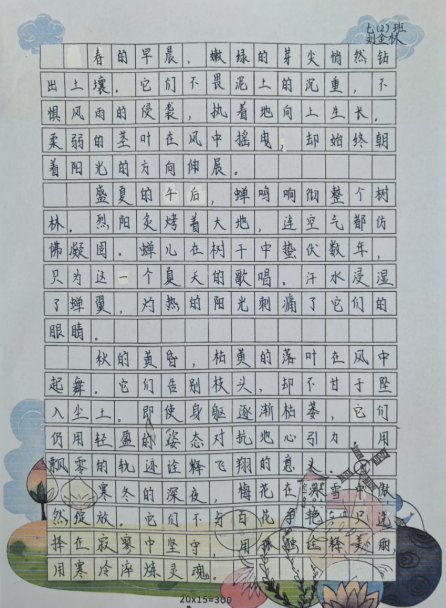 七(2)班
刘金秋
春的早晨，嫩绿的芽尖悄然钻
出土壤。它们不畏泥土的沉重，不
惧风雨的侵袭，执着地向上生长。
柔弱的茎叶在风中摇曳，却始终朝
着阳光的方向伸展。
盛夏的午后，蝉鸣响彻整个树
林。烈阳炙烤着大地，连空气都仿
佛凝固。蝉儿在树干中蛰伏数年，
只为这一个夏天的歌唱。汗水浸湿
了蝉翼，灼热的阳光刺痛了它们的
眼睛。
秋的黄昏，枯黄的落叶在风中
起舞。它们告别枝头，却不甘于坠
入尘土。即使身躯逐渐枯萎，它们
仍用轻盈的姿态对抗地心引力，用
飘零的轨迹诠释飞翔的意义。
寒冬的深夜，梅花在寒雪中傲
然绽放。它们不与百花争艳，只选
择在寂寥中坚守，用孤独诠释美丽，
用寒冷淬炼灵魂。
20×15=300